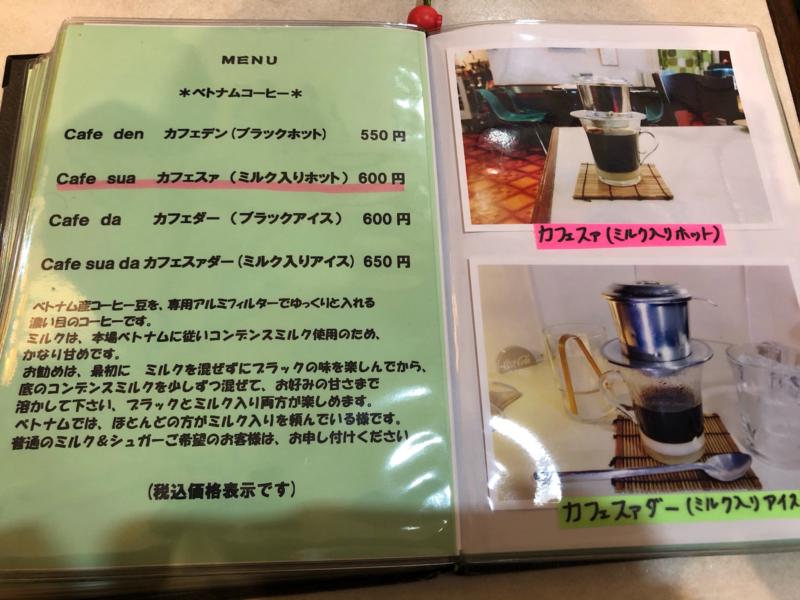 MENU
＊ベトナムコーヒー＊
Cafe den カフェデン（ブラックホット） 550円
Cafe sua カフェスァ（ミルク入りホット） 600円
Cafe da カフェダー（ブラックアイス） 600円
Cafe sua da カフェスァダー（ミルク入りアイス） 650円
ベトナム産コーヒー豆を、専用アルミフィルターでゆっくりと入れる
濃い目のコーヒーです。
ミルクは、本場ベトナムに従いコンデンスミルク使用のため、
かなり甘めです。
お勧めは、最初に ミルクを混ぜずにブラックの味を楽しんでから、
底のコンデンスミルクを少しずつ混ぜて、お好みの甘さまで
溶かして下さい、ブラックとミルク入り両方が楽しめます。
ベトナムでは、ほとんどの方がミルク入りを頼んでいる様です。
普通のミルク＆シュガーご希望のお客様は、お申し付けください
（税込価格表示です）
カフェスァ（ミルク入りホット）
カフェスァダー（ミルク入りアイス